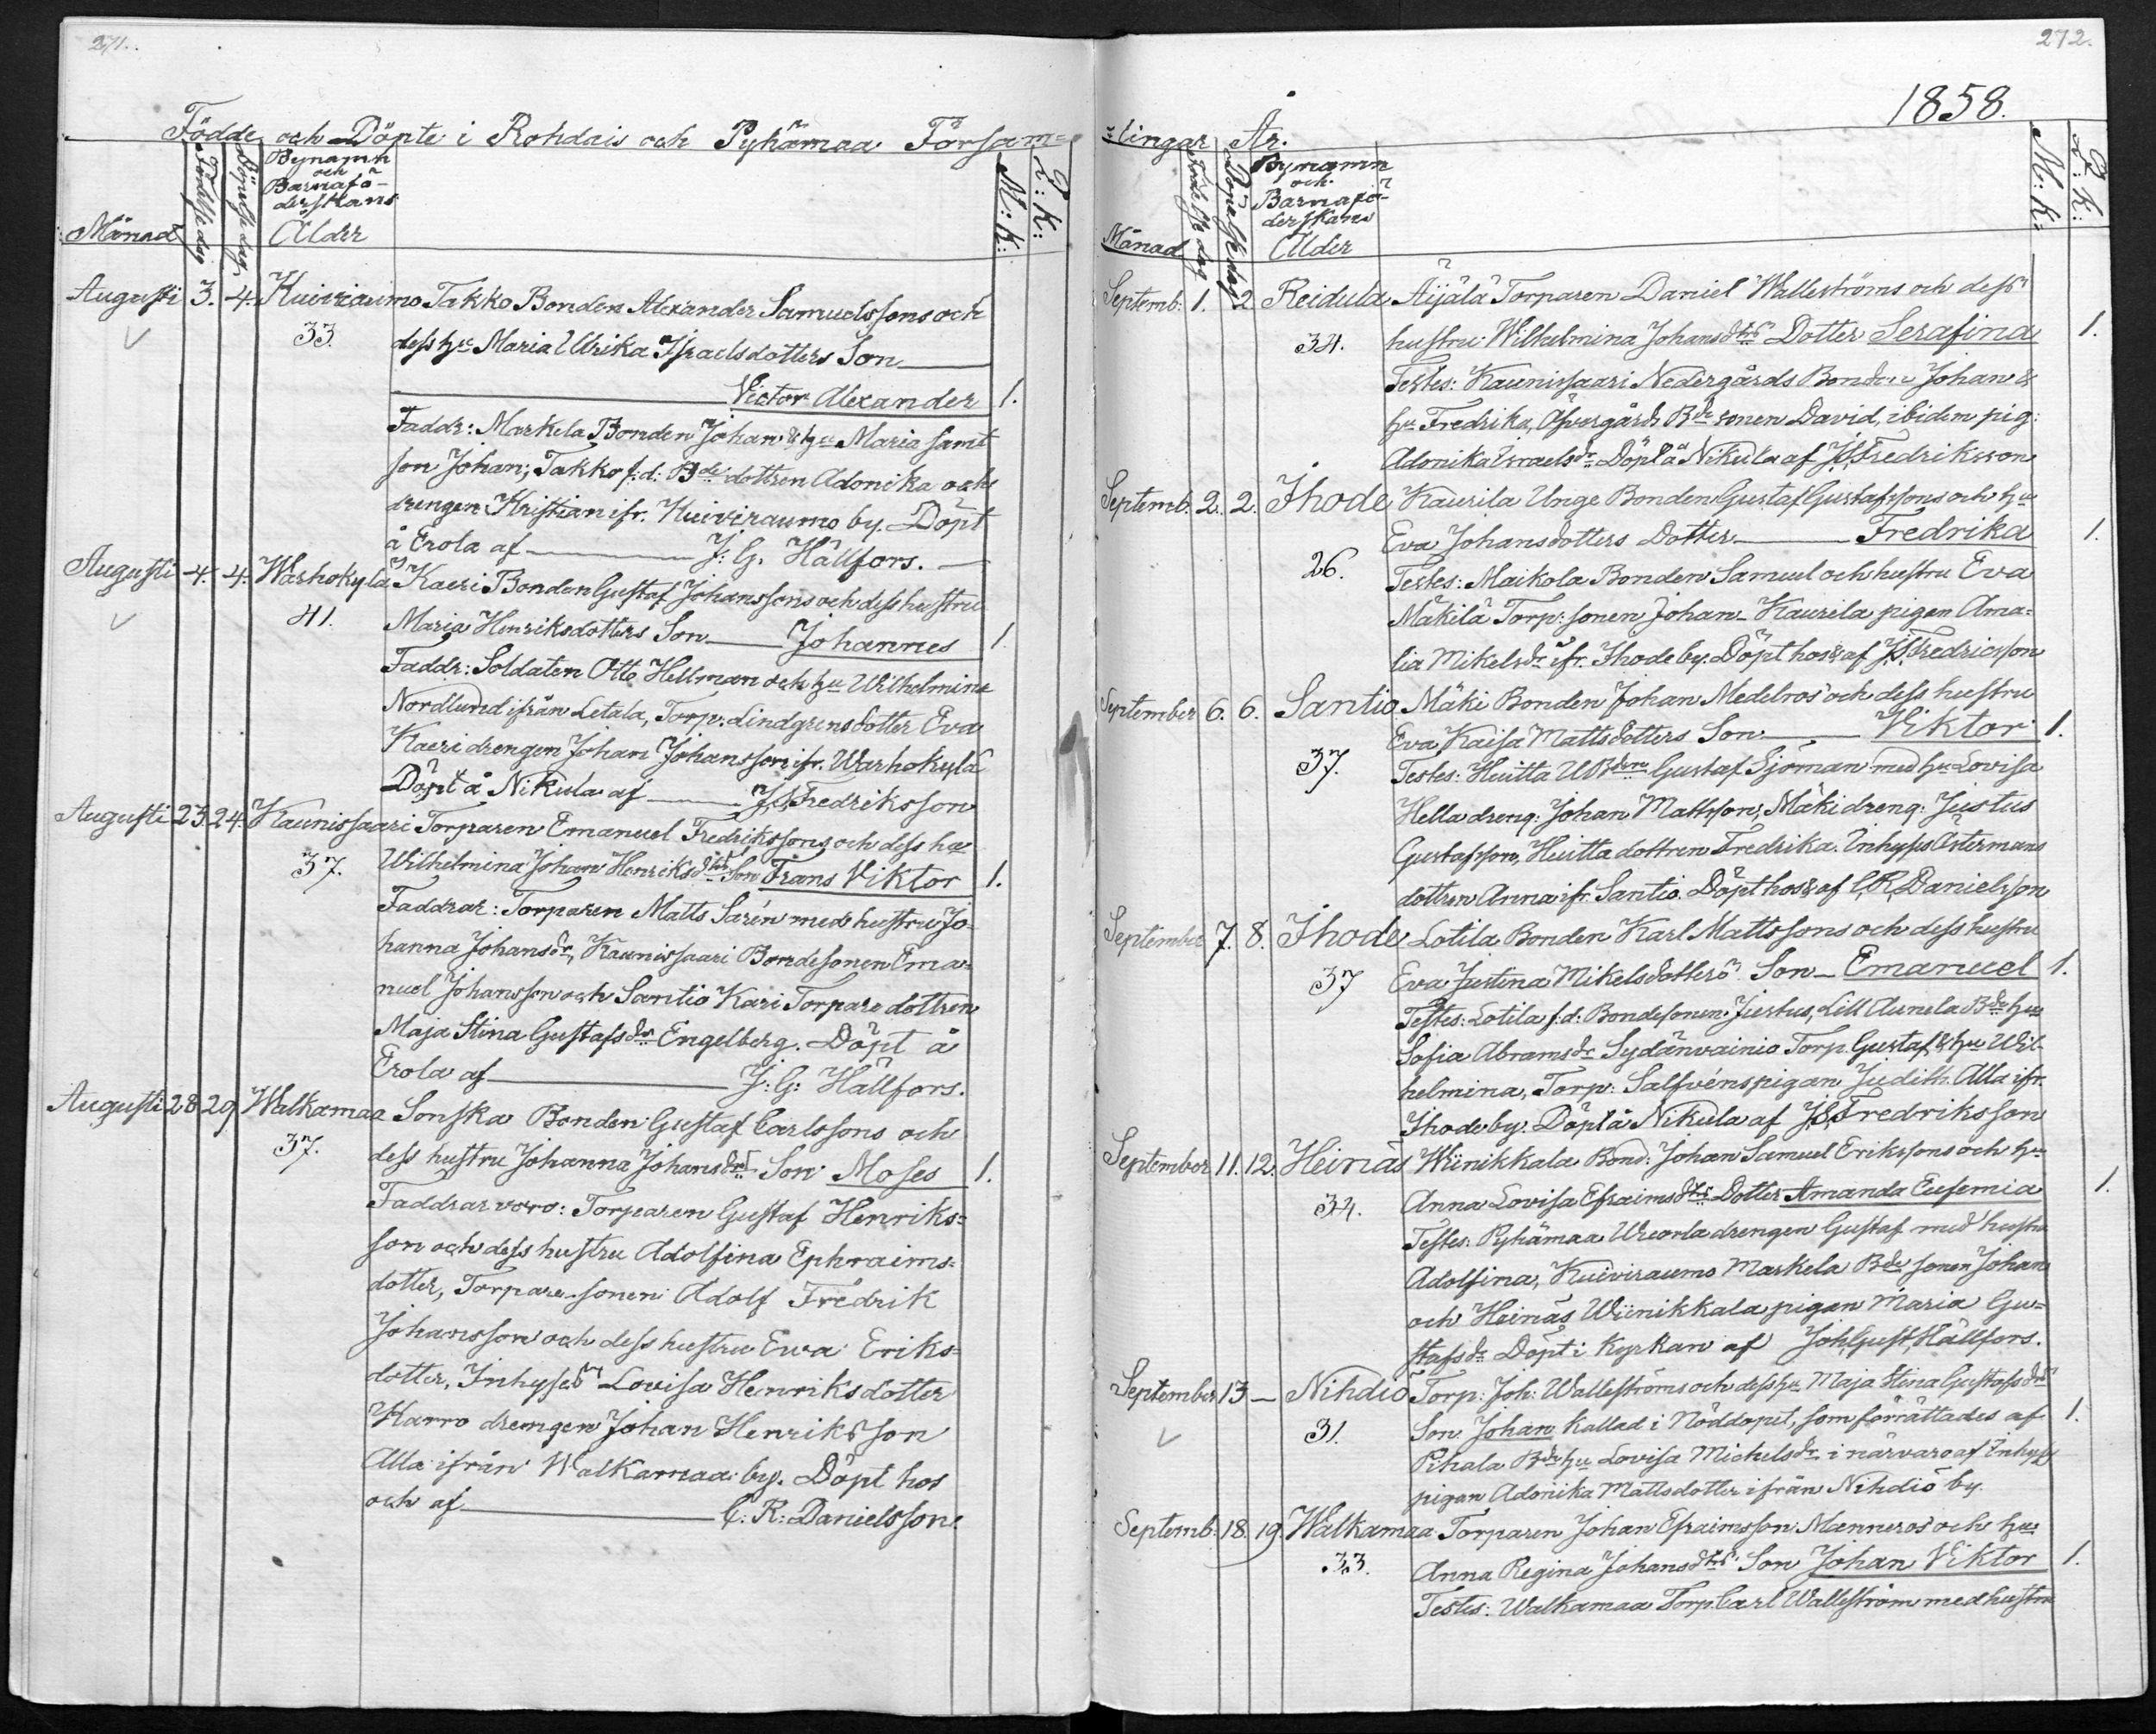 271.
Födde och Döpte i Rohdais och Pyhämaa Församl=
Månad
Födelse dag
Döpelse dag
Bynamn
och
Barnafö-
derskans
Ålder
M: K:
Q: K:
Augusti 3. 4. Kuiviraumo Takko Bonden Alexander Samuelssons och
33. dess hu Maria Ulrika Israelsdotters Son
Victor Alexander 1.
Faddr: Markela Bonden Johan & hu Maria samt
son Johan; Takko f: d: Bde dottren Adonika och
drengen Kristian ifr. Kuiviraumo by. Döpt
å Erola af J: G. Hällfors.
Augusti 4. 4. Warhokylä Kaeri Bonden Gustaf Johanssons och dess hustru
41. Maria Henriksdotters Son Johannes 1.
Faddr: Soldaten Otto Hellman och hu Wilhelmina
Nordlund ifrån Letala, Torp: Lindgrens dotter Eva
Kaeri drengen Johan Johansson ifr. Warhokylä
Döpt å Nikula af J.S. Fredriksson
Augusti 23. 24. Kaunissaari Torparen Emanuel Fredrikssons och dess hu
37. Wilhelmina Johan Henriksdtrs Son Frans Viktor 1.
Faddrar: Torparen Matts Sarén med hustru Jo-
hanna Johansdr, Kaunissaari Bondesonen Ema-
nuel Johansson och Santio Kari Torpare dottren
Maja Stina Gustafsdr Engelberg. Döpt å
Erola af J: G: Hällfors.
Augusti 28. 29. Walkamaa Sonska Bonden Gustaf Carlssons och
37. dess hustru Johanna Johansdrs Son Moses 1.
Faddrar voro: Torparen Gustaf Henriks=
son och dess hustru Adolfina Ephraims=
dotter, Torpare sonen Adolf Fredrik
Johansson och dess hustru Eva Eriks=
dotter, Inhyses Lovisa Henriksdotter
Harro drengen Johan Henriksson
Alla ifrån Walkamaa by. Döpt hos
och af C: R: Danielsson.
272.
1858.
=lingar År.
Månad
Födelse dag
Döpelse dag
Bynamn
och
Barnafö-
derskans
Ålder
M: K:
Q: K:
Septemb: 1. 2. Reidula Äijälä Torparen Daniel Wallströms och dess
34. hustru: Wilhelmina Johansdtrs Dotter Serafina 1.
Testes: Kaunissaari Nedergårds Bonden Johan &
hu Fredrika, Öfvergårds Bde sonen David, ibidem pig:
Adonika Israelsdr Döpt å Nikula af J.S. Fredriksson
Septemb. 2. 2. Ihode Kaurila Unge Bonden Gustaf Gustafssons och hu
Eva Johansdotters Dotter Fredrika 1.
26. Testes: Maikola Bonden Samuel och hustru Eva
Mäkilä Torp: sonen Johan Kaurila pigan Ama=
lia Mikelsdr ifr. Ihode by. Döpt hos & af J.S. Fredricsson
September 6. 6. Santio Mäki Bonden Johan Medelros och dess hustru
Eva Kaisa Mattsdotters Son Viktor 1.
37. Testes: Huitta UBden Gustaf Sjöman med hu Lovisa
Hella dreng: Johan Mattsson; Mäki dreng: Justus
Gustafsson, Huitta dottren Fredrika. Inhyses Östermans
dottren Anna ifr Santio. Döpt hos & af C.R. Danielsson
September 7. 8. Ihode Lotila Bonden Karl Mattssons och dess hustru
37 Eva Justina Mikelsdotters Son Emanuel 1.
Testes: Lotila f: d: Bondesonen Justus, Lill Aunela Bde hu
Sofia Abramsdr Sydänvainio Torp. Gustaf & hu Wil-
helmina, Torp: Salfvéns pigan Judith. Alla ifr.
Ihode by. Döpt å Nikula af J.S. Fredriksson
September 11. 12. Heinäs Wiinikkala Bond: Johan Samuel Erikssons och hu
34. Anna Lovisa Efraimsdtrs Dotter Amanda Eufemia 1.
Testes: Pyhämaa Wuorla drengen Gustaf med hustru
Adolfina, Kuiviraumo Markela Bde sonen Johan
och Heinäs Wiinikkala pigan Maria Gu=
stafsdr Döpt i Kyrkan af Joh. Gust. Hällfors.
September 13 — Nihdiö Torp: Joh: Wallströms och dess hu Maja Stina Gustafsdrs
31. Son Johan kallad i Nöddopet, som förrättades af 1.
Pihala Bde hu Lovisa Michelsdr i närvaro af Inhyses
pigan Adonika Mattsdotter ifrån Nihdiö by.
Septemb: 18. 19. Walkamaa Torparen Johan Efraimsson Manneros och hus
33. Anna Regina Johansdtrs Son Johan Viktor 1.
Testes: Walkamaa Torp. Carl Wallström med hustru